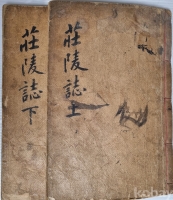 莊陵誌上
莊陵誌下